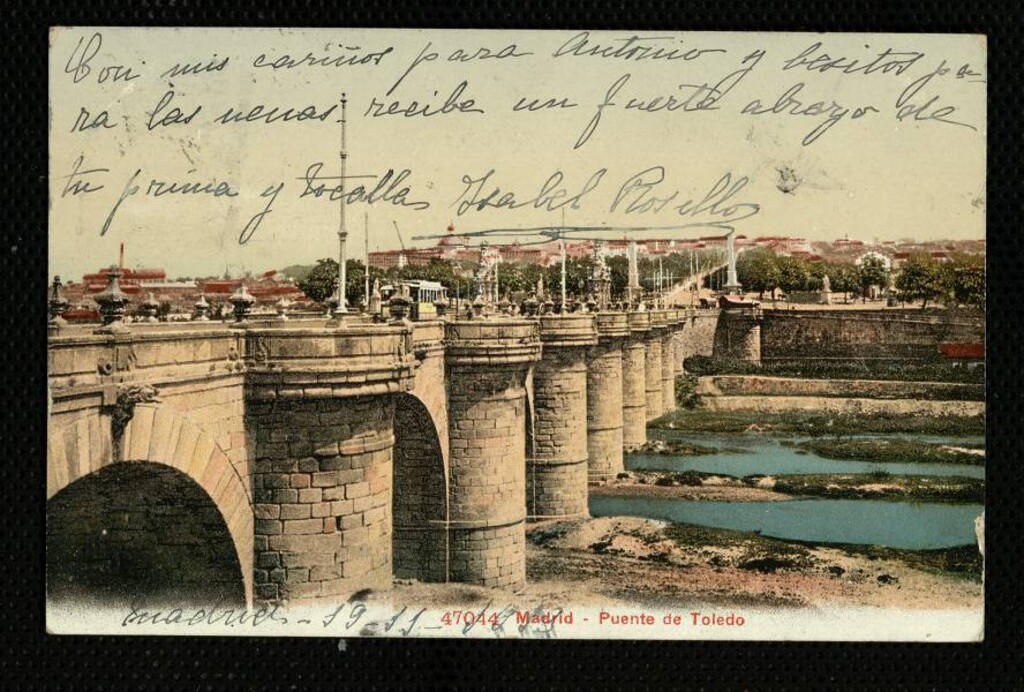 Con mis cariños para Antonio y besitos pa-
ra las nenas recibe un fuerte abrazo de
tu prima y tocalla Isabel Rosillo
Madrid - 19-11-
47044 Madrid - Puente de Toledo